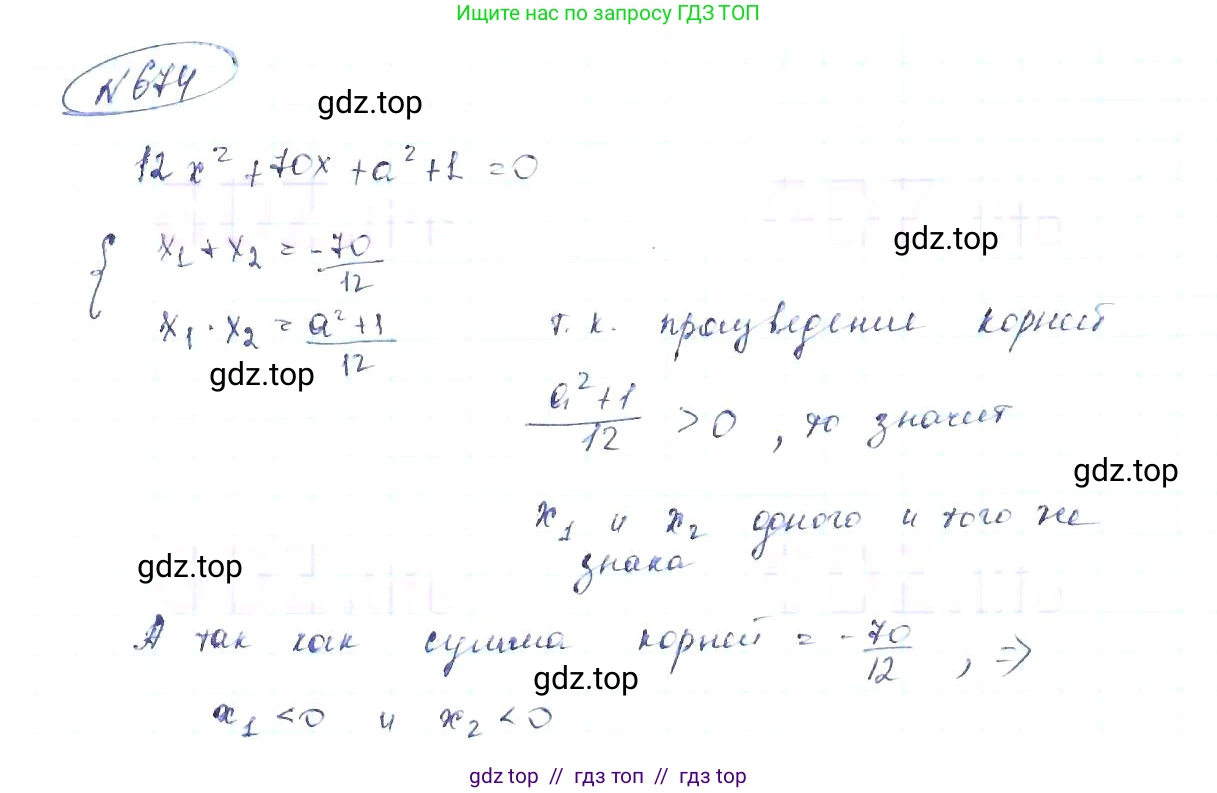 Ищите нас по запросу ГДЗ ТОП
№ 674
gdz.top
12x² + 70x + a² + 1 = 0
{ x₁ + x₂ = -70/12
gdz.top
x₁ · x₂ = a²+1/12
т. к. произведение корней
gdz.top
a²+1/12 > 0, то значит
gdz.top
x₁ и x₂ одного и того же
знака
gdz.top
А так как сумма корней = -70/12, ⇒
gdz.top
x₁ < 0 и x₂ < 0
gdz top // гдз топ // gdz top